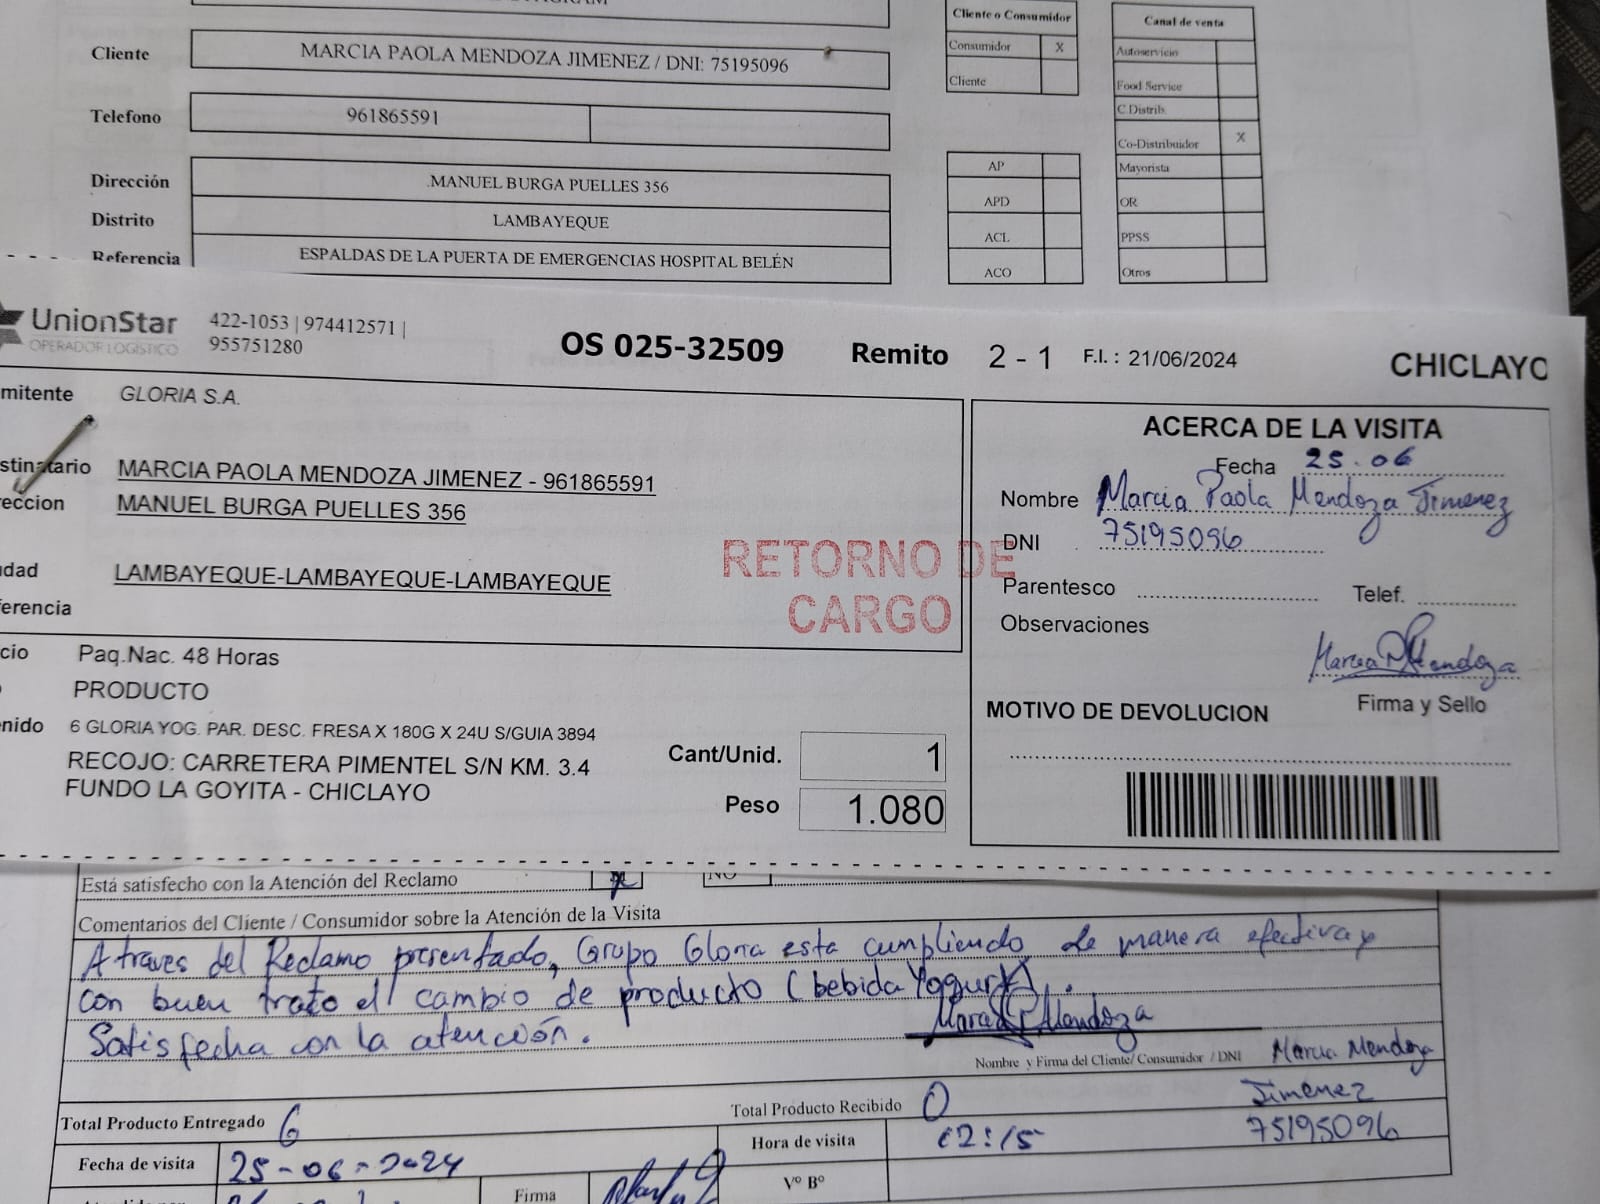 Cliente MARCIA PAOLA MENDOZA JIMENEZ / DNI: 75195096
Telefono 961865591
Dirección .MANUEL BURGA PUELLES 356
Distrito LAMBAYEQUE
Referencia ESPALDAS DE LA PUERTA DE EMERGENCIAS HOSPITAL BELÉN
Cliente o Consumidor
Consumidor X
Cliente
AP
APD
ACL
ACO
Canal de venta
Autoservicio
Food Service
C.Distrib.
Co-Distribuidor X
Mayorista
OR
PPSS
Otros
UnionStar
OPERADOR LOGÍSTICO
422-1053 | 974412571 |
955751280
OS 025-32509 Remito 2 - 1 F.I. : 21/06/2024 CHICLAYO
mitente GLORIA S.A.
stinatario MARCIA PAOLA MENDOZA JIMENEZ - 961865591
eccion MANUEL BURGA PUELLES 356
dad LAMBAYEQUE-LAMBAYEQUE-LAMBAYEQUE
ferencia
RETORNO DE
CARGO
cio Paq.Nac. 48 Horas
PRODUCTO
nido 6 GLORIA YOG. PAR. DESC. FRESA X 180G X 24U S/GUIA 3894
RECOJO: CARRETERA PIMENTEL S/N KM. 3.4
FUNDO LA GOYITA - CHICLAYO
Cant/Unid. 1
Peso 1.080
ACERCA DE LA VISITA
Fecha 25.06
Nombre Marcia Paola Mendoza Jimenez
DNI 75195096
Parentesco Telef.
Observaciones
Marcia P Mendoza
Firma y Sello
MOTIVO DE DEVOLUCION
Está satisfecho con la Atención del Reclamo x NO
Comentarios del Cliente / Consumidor sobre la Atención de la Visita
A traves del Reclamo presentado, Grupo Gloria esta cumpliendo de manera efectiva y
con buen trato el cambio de producto (bebida Yogurt).
Satisfecha con la atención.
Marcia P Mendoza
Nombre y Firma del Cliente/ Consumidor / DNI Marcia Mendoza
Jimenez
75195096
Total Producto Entregado 6
Total Producto Recibido 0
Fecha de visita 25-06-2024
Hora de visita 12:15
Firma
V° B°